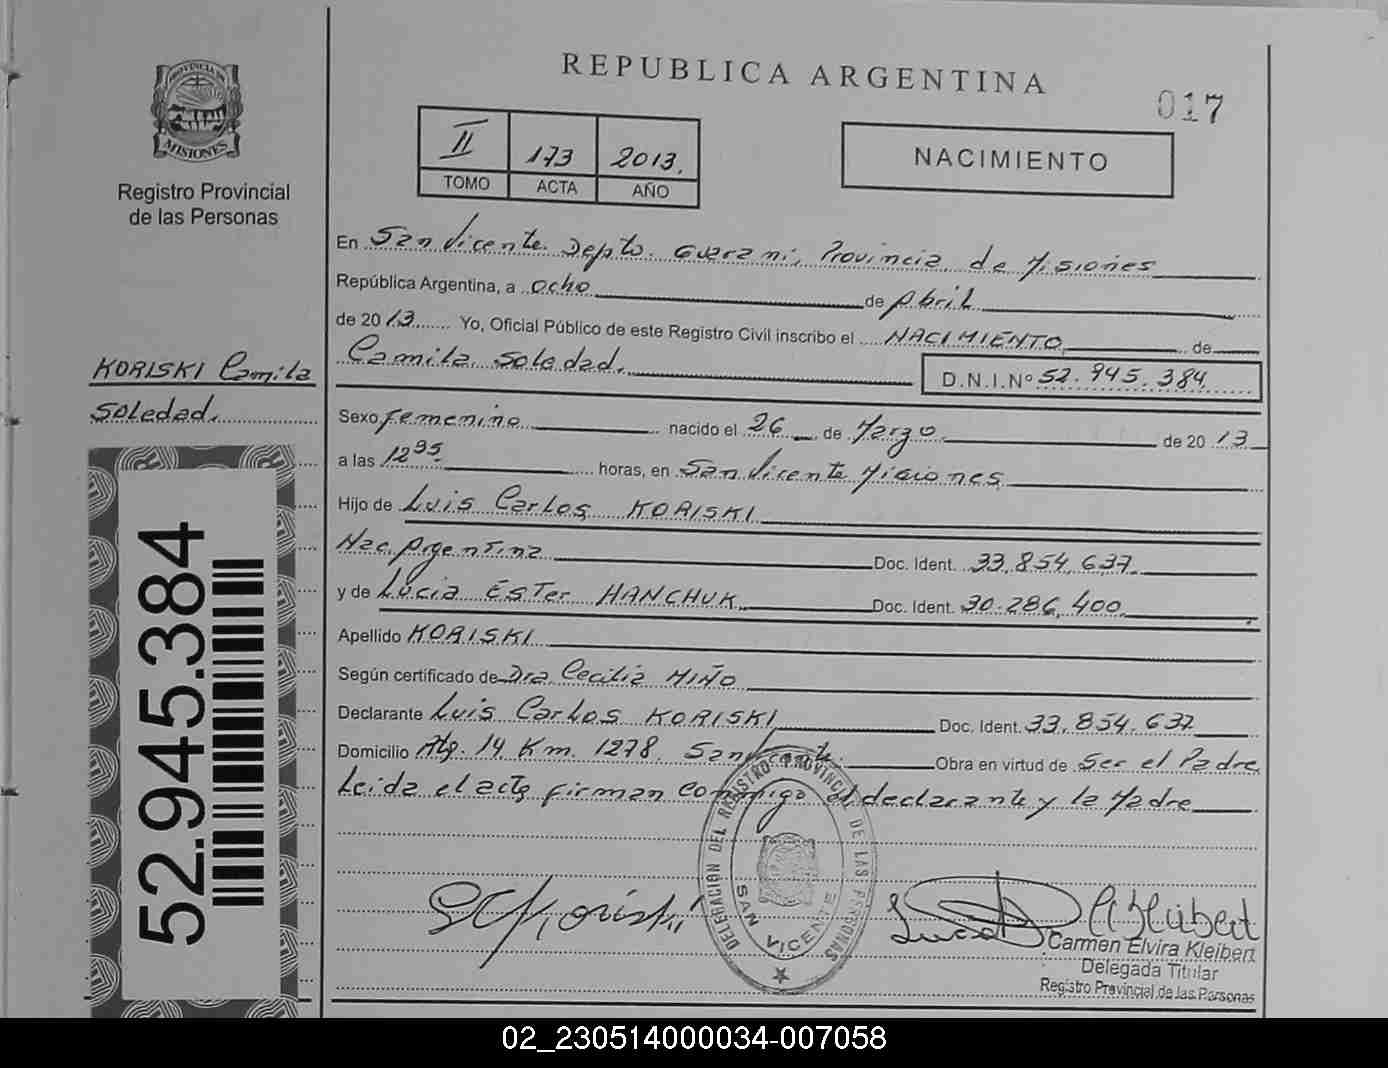 REPUBLICA ARGENTINA
017
PROVINCIA DE
MISIONES
Registro Provincial
de las Personas
II 173 2013.
TOMO ACTA AÑO
NACIMIENTO
En San Vicente. Depto. Guarani, Provincia de Misiones
República Argentina, a ocho de Abril
de 2013 Yo, Oficial Público de este Registro Civil inscribo el NACIMIENTO de
Camila Soledad. D.N.I.Nº 52.945.384
KORISKI Camila
Soledad.
Sexo femenino nacido el 26 de Marzo de 2013
a las 12 35 horas, en San Vicente Misiones
Hijo de Luis Carlos KORISKI
Nac. Argentina Doc. Ident. 33.854.637.
y de Lucia Ester HANCHUK Doc. Ident. 30.286.400
Apellido KORISKI
Según certificado de Dra Cecilia MIÑO
Declarante Luis Carlos KORISKI Doc. Ident. 33.854.637
Domicilio Km. 1278. San Vicente. Obra en virtud de Ser el Padre
Leida el acta firman conmigo el declarante y la Madre
52.945.384
DELEGACION DEL REGISTRO PROVINCIAL DE LAS PERSONAS
SAN VICENTE
Carmen Elvira Kleibert
Delegada Titular
Registro Provincial de las Personas
02_230514000034-007058